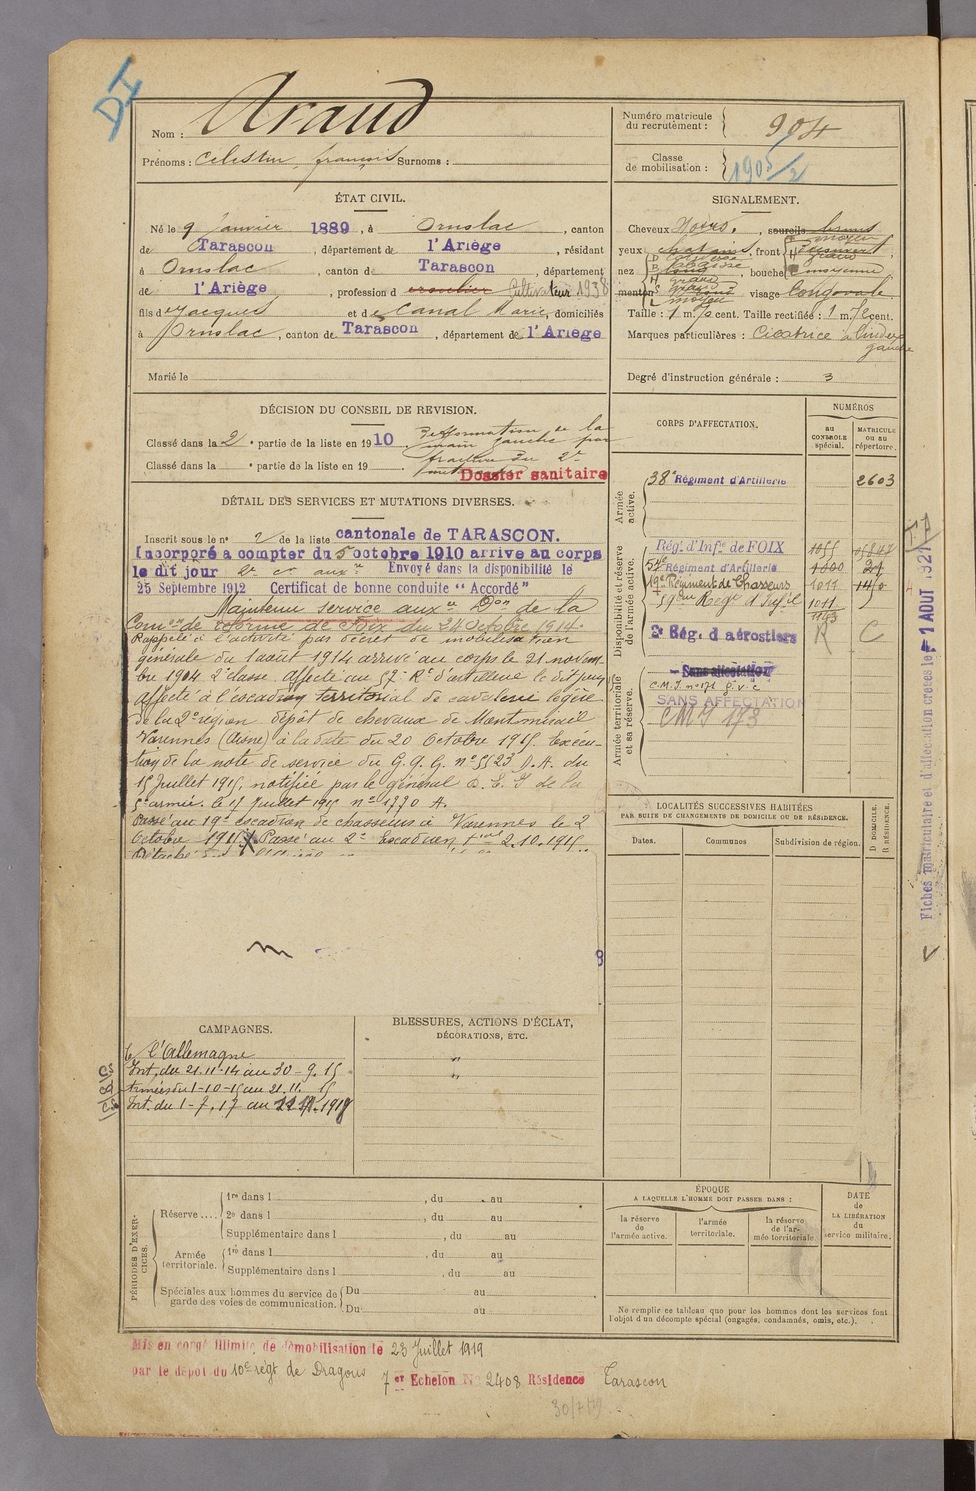 DI
Nom : Araud
Prénoms : Celestin, françois Surnoms :
Numéro matricule du recrutement : 904
Classe de mobilisation : 1905/2
ÉTAT CIVIL.
Né le 9 Janvier 1889, à Ornolac, canton
de Tarascon, département de l'Ariège, résidant
à Ornolac, canton de Tarascon, département
de l'Ariège, profession d Cultivateur 1938
fils de Jacques et de Canal Marie, domiciliés
à Ornolac, canton de Tarascon, département de l'Ariège
Marié le
SIGNALEMENT.
Cheveux Noirs, sourcils bruns
yeux chatains, front moyen
nez, bouche moyenne
menton, visage Long ovale
Taille : 1 m. 72 cent. Taille rectifiée : 1 m. 72 cent.
Marques particulières : Cicatrice à l'index
gauche
Degré d'instruction générale : 3
DÉCISION DU CONSEIL DE REVISION.
Classé dans la 2e partie de la liste en 1910. Déformation de la
main gauche par
fracture du 2e
Classé dans la e partie de la liste en 19
Dossier sanitaire
DÉTAIL DES SERVICES ET MUTATIONS DIVERSES.
Inscrit sous le n° 2 de la liste cantonale de TARASCON.
Incorporé a compter du 5 octobre 1910 arrive au corps
le dit jour 2e cr auxre Envoyé dans la disponibilité le
25 Septembre 1912 Certificat de bonne conduite "Accordé"
Maintenu service auxre Don de la
Comon de réforme de Foix du 24 Octobre 1914.
Rappelé à l'activité par décret de mobilisation
générale du 1 août 1914 arrivé au corps le 21 novem-
bre 1914 2e classe. Affecté au 57e Rt d'artillerie le dit jour
Affecté à l'escadron territorial de cavalerie légère
de la 2e région dépôt de chevaux de Montmirail
Varennes (Aisne) à la date du 20 Octobre 1915. Exécu-
tion de la note de service du G. Q. G. n° 5523 D.A. du
15 Juillet 1915, notifiée par le général D. E. S de la
5e armée. le 15 Juillet 1915 n° 1220 A.
Passé au 19e escadron de chasseurs à Varennes le 2
Octobre 1915 X Passé au 2e Escadron Trial 2.10.1915
CORPS D'AFFECTATION.
NUMÉROS
au CONTROLE spécial.
MATRICULE ou au répertoire.
Armée active.
38e Régiment d'Artillerie 2603
Disponibilité et réserve de l'armée active.
Rég. d'Infie de FOIX 1055
57e Régiment d'Artillerie 1600 21
19e Régiment de Chasseurs 1011 140
59e Regt d'Infie 1011
1103
2e Rég. d'aérostiers R C
Armée territoriale et sa réserve.
Sans affectation
C.M.I. n° 171 g.v.c
SANS AFFECTATION
CMI 173
Fiches matriculaire et d'affectation créées le 1 AOUT 1927
LOCALITÉS SUCCESSIVES HABITÉES
PAR SUITE DE CHANGEMENTS DE DOMICILE OU DE RÉSIDENCE.
Dates. Communes Subdivision de région. D DOMICILE. R RÉSIDENCE.
CAMPAGNES.
c/ l'Allemagne
CS Int. du 21-11-14 au 30-9-15
CD Armées du 1-10-15 au 21.11. 15
CS Int. du 1-7-17 au 11.11.1918
BLESSURES, ACTIONS D'ÉCLAT,
DÉCORATIONS, ETC.
PÉRIODES D'EXERCICES.
Réserve .... 1re dans l , du au
2e dans l , du au
Supplémentaire dans l , du au
Armée territoriale. 1re dans l , du au
Supplémentaire dans l , du au
Spéciales aux hommes du service de garde des voies de communication. Du au
Du au
ÉPOQUE
A LAQUELLE L'HOMME DOIT PASSER DANS :
la réserve de l'armée active.
l'armée territoriale.
la réserve de l'armée territoriale.
DATE de LA LIBÉRATION du service militaire.
Ne remplir ce tableau que pour les hommes dont les services font
l'objet d'un décompte spécial (engagés, condamnés, omis, etc.).
Mis en congé illimité de démobilisation le 23 Juillet 1919
par le dépôt du 10e régt de Dragons 7e Echelon No 2408 Résidence Tarascon
30/7/19